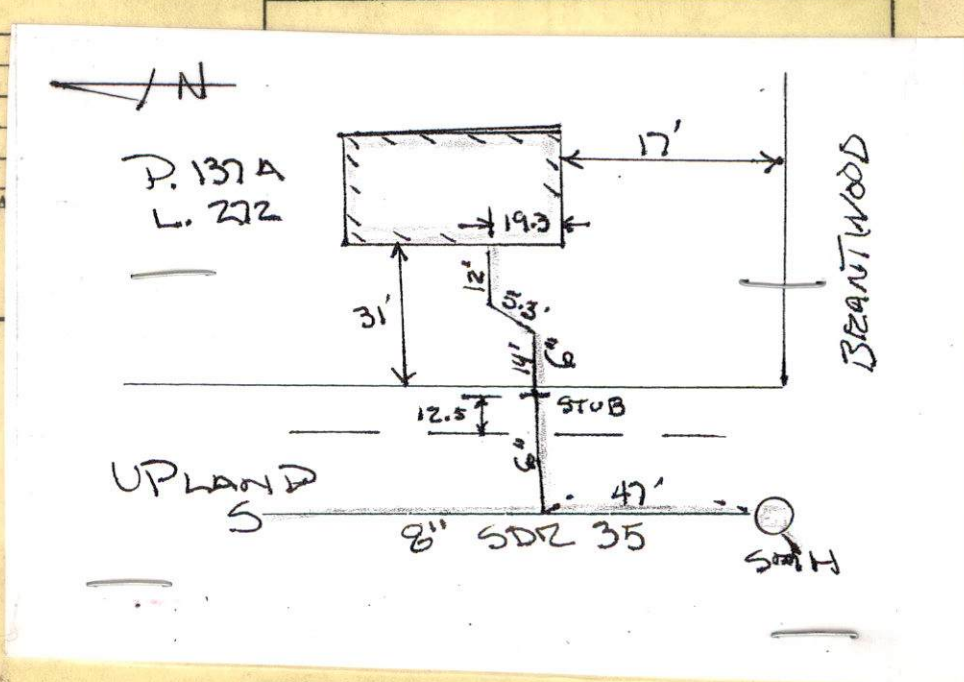 N
P. 137A
L. 272
17'
19.3
BRANTWOOD
12'
5.3'
31'
14'
6"
12.5
STUB
6"
UPLAND
S
47'
8" SDR 35
SMH